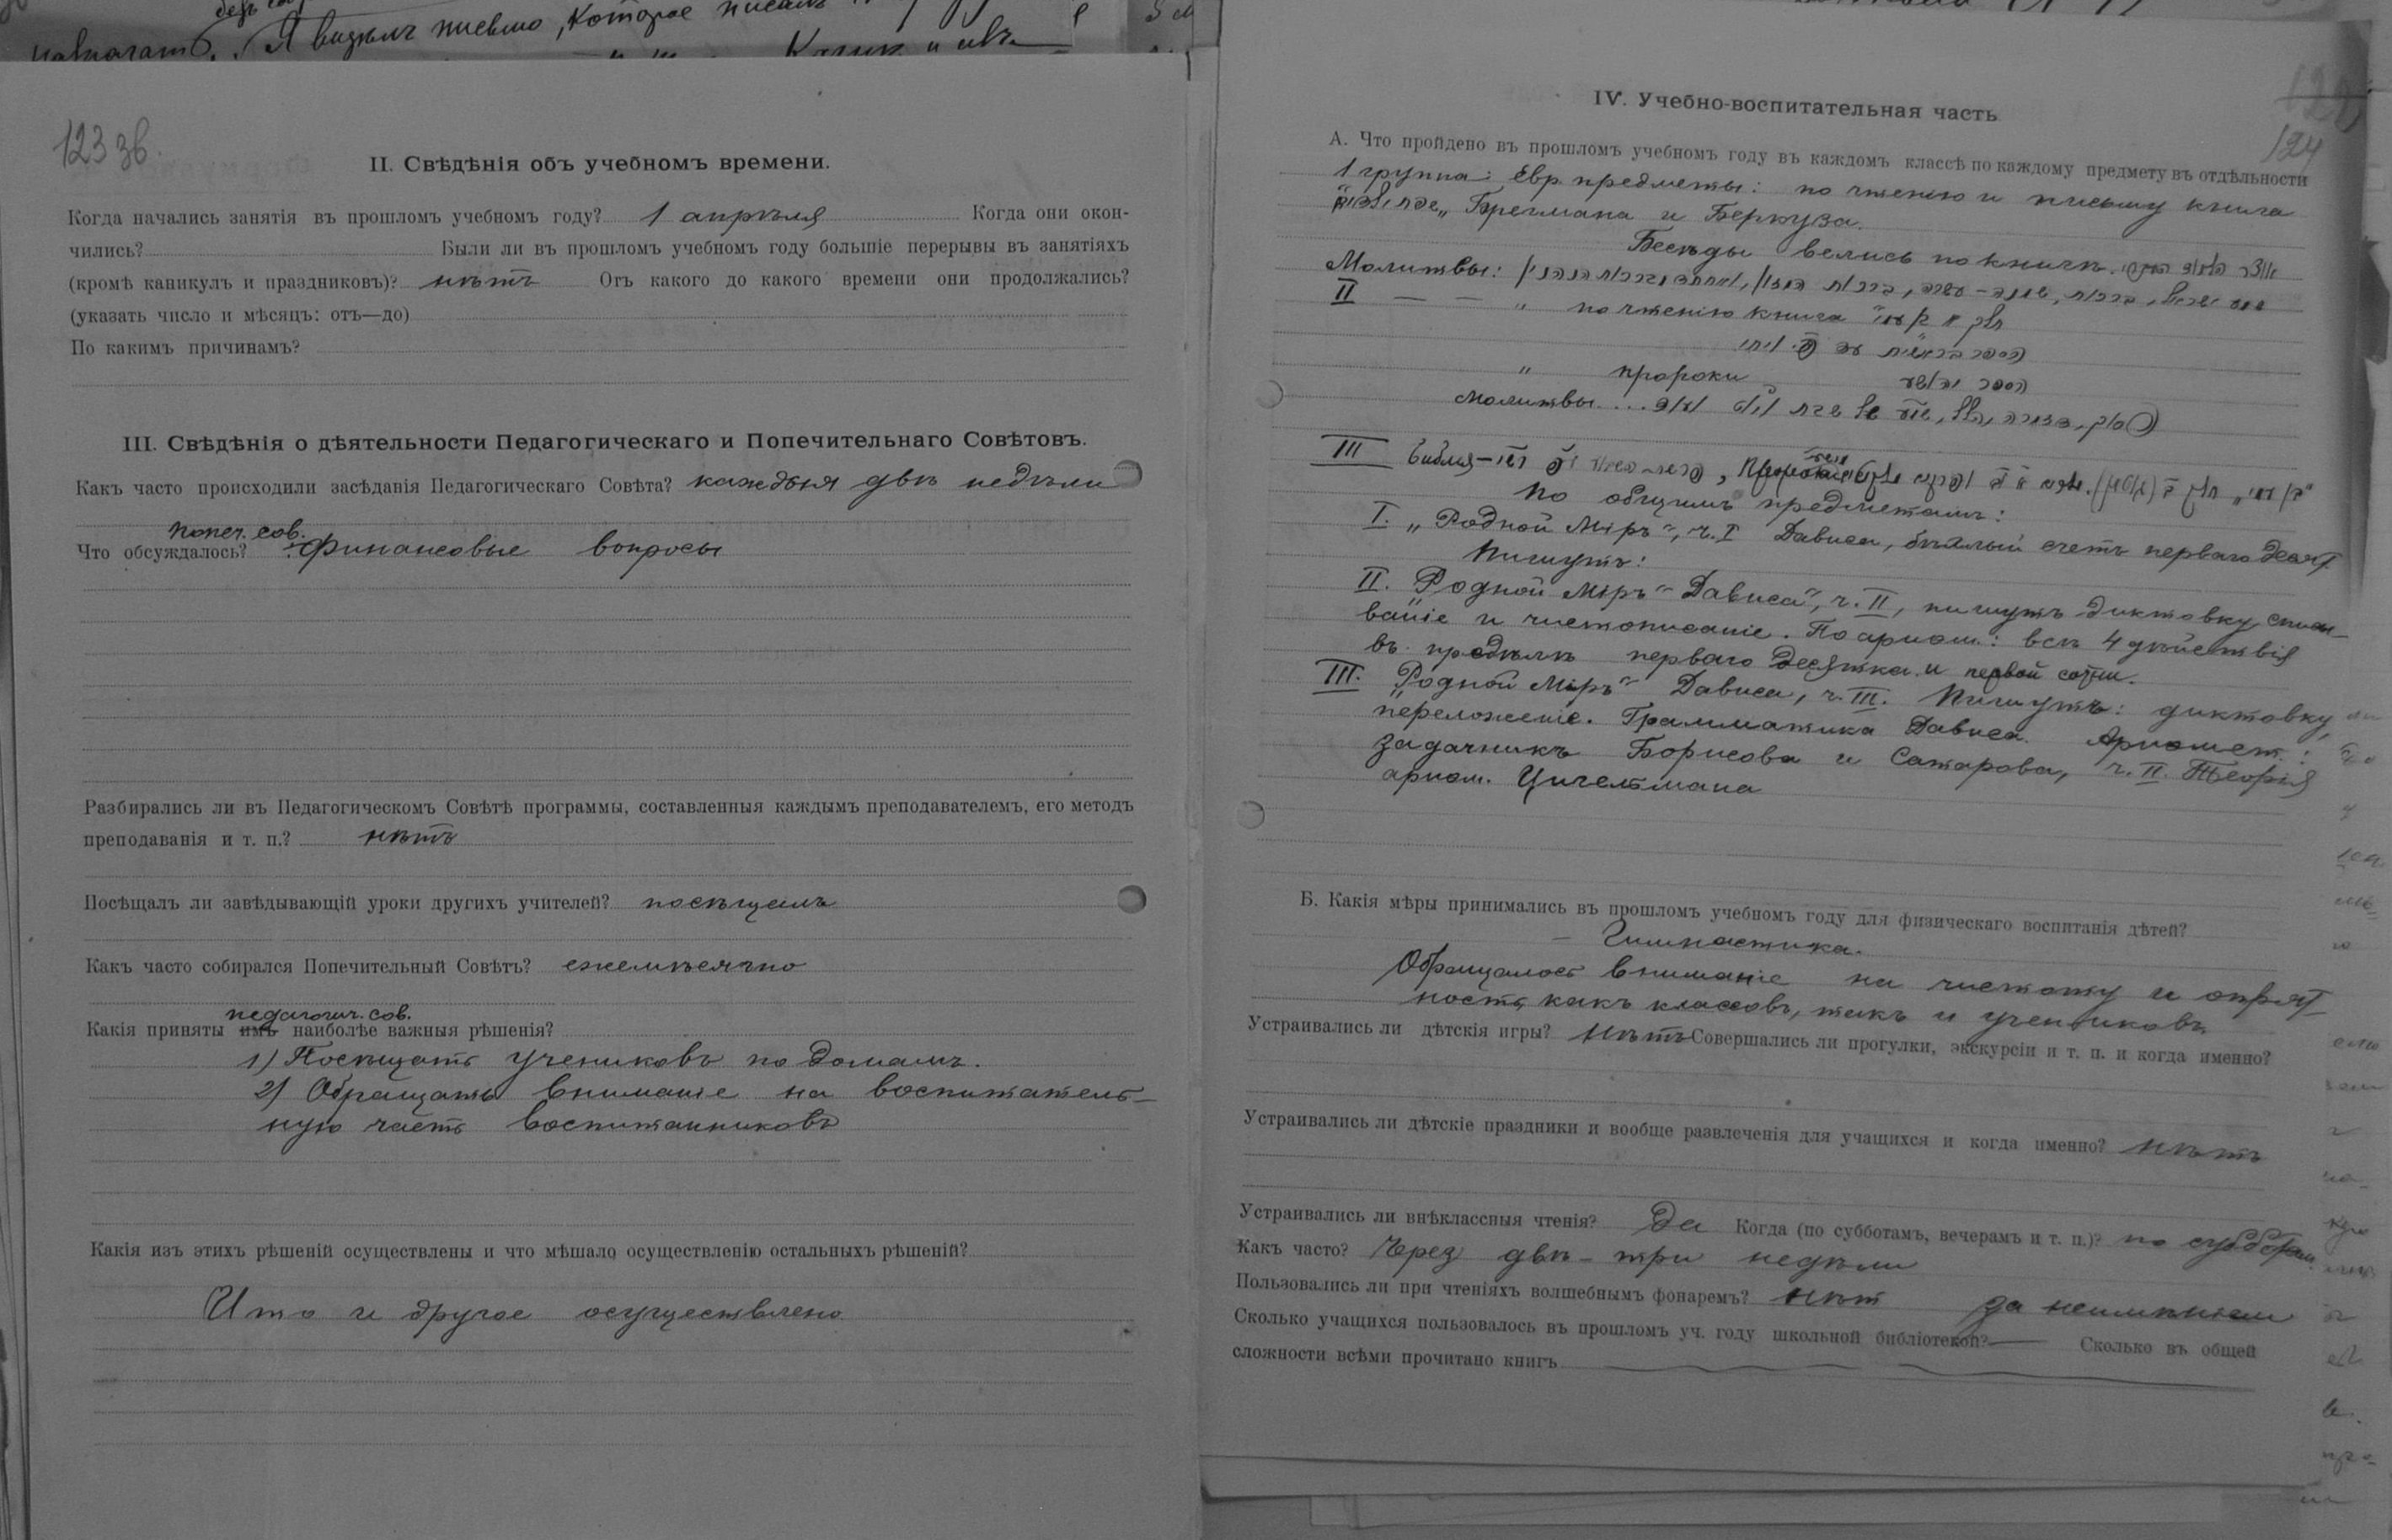 Я видѣлъ письмо, которое писалъ
123 об.
II. Свѣдѣнія объ учебномъ времени.
Когда начались занятія въ прошломъ учебномъ году? 1 апрѣля Когда они окон-
чились? Были ли въ прошломъ учебномъ году большіе перерывы въ занятіяхъ
(кромѣ каникулъ и праздниковъ)? нѣтъ Отъ какого до какого времени они продолжались?
(указать число и мѣсяцъ: отъ—до)
По какимъ причинамъ?
III. Свѣдѣнія о дѣятельности Педагогическаго и Попечительнаго Совѣтовъ.
Какъ часто происходили засѣданія Педагогическаго Совѣта? каждыя двѣ недѣли
попеч. сов.
Что обсуждалось? Финансовые вопросы
Разбирались ли въ Педагогическомъ Совѣтѣ программы, составленныя каждымъ преподавателемъ, его методъ
преподаванія и т. п.? нѣтъ
Посѣщалъ ли завѣдывающій уроки другихъ учителей? посѣщалъ
Какъ часто собирался Попечительный Совѣтъ? ежемѣсячно
педагогич. сов.
Какія приняты имъ наиболѣе важныя рѣшенія?
1) Посѣщать учениковъ по домамъ.
2) Обращать вниманіе на воспитатель-
ную часть воспитанниковъ
Какія изъ этихъ рѣшеній осуществлены и что мѣшало осуществленію остальныхъ рѣшеній?
И то и другое осуществлено
124
IV. Учебно-воспитательная часть
А. Что пройдено въ прошломъ учебномъ году въ каждомъ классѣ по каждому предмету въ отдѣльности
1 группа: Евр. предметы: по чтенію и письму книга
Брегмана и Беркуза.
Бесѣды велись по книгѣ
Молитвы:
II — — " по чтенію книга
" пророки
Молитвы ...
III Библія —
По общимъ предметамъ:
I. „Родной Міръ", ч. I Дависа, бѣглый счетъ перваго десят.
Пишутъ:
II. „Родной Міръ" Дависа", ч. II, пишутъ диктовку, списы-
ваніе и чистописаніе. По ариѳм.: всѣ 4 дѣйствія
въ предѣлѣ перваго десятка и первой сотни.
III. „Родной Міръ" Дависа, ч. III. Пишутъ: диктовку,
переложеніе. Грамматика Дависа. Ариѳмет.:
Задачникъ Борисова и Сатарова, ч. II. Теорія
ариѳм. Цичельмана
Б. Какія мѣры принимались въ прошломъ учебномъ году для физическаго воспитанія дѣтей?
— Гимнастика.
Обращалось вниманіе на чистоту и опрят-
ность, какъ классовъ, такъ и учениковъ.
Устраивались ли дѣтскія игры? Нѣтъ Совершались ли прогулки, экскурсіи и т. п. и когда именно?
Устраивались ли дѣтскіе праздники и вообще развлеченія для учащихся и когда именно? Нѣтъ
Устраивались ли внѣклассныя чтенія? Да Когда (по субботамъ, вечерамъ и т. п.)? по субботам.
Какъ часто? Черезъ двѣ-три недѣли
Пользовались ли при чтеніяхъ волшебнымъ фонаремъ? Нѣт за неимѣніем
Сколько учащихся пользовалось въ прошломъ уч. году школьной библіотекой? — Сколько въ общей
сложности всѣми прочитано книгъ